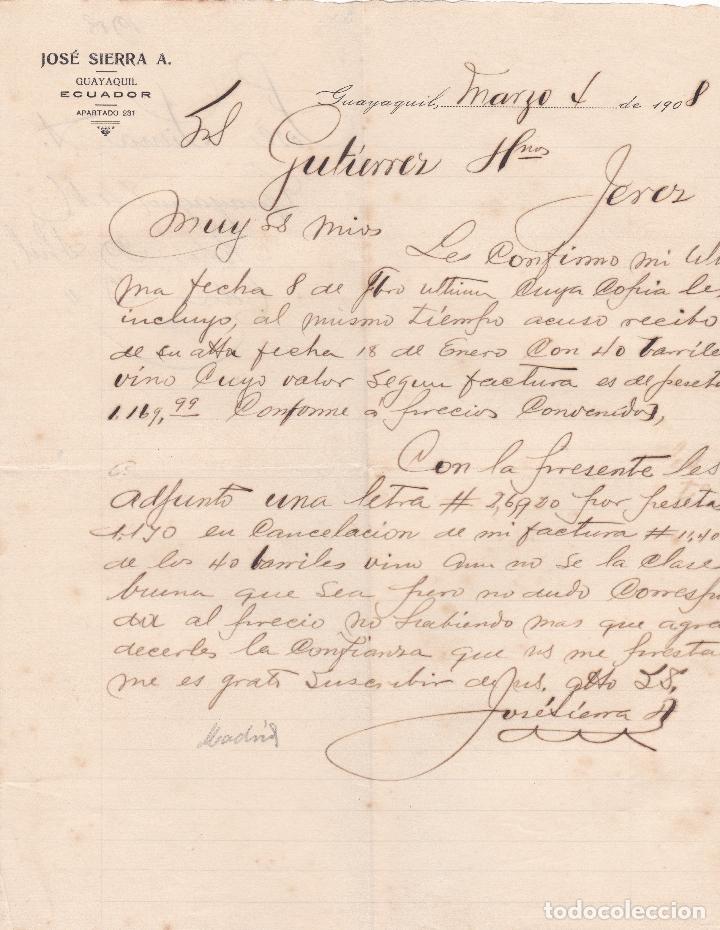 JOSÉ SIERRA A.
GUAYAQUIL
ECUADOR
APARTADO 231
Guayaquil, Marzo 4 de 1908
SS
Gutiérrez Hnos
Jerez
Muy SS mios
Les Confirmo mi Ulti
ma fecha 8 de Fbro ultimo Cuya Copia les
incluyo, al mismo tiempo acuso recibo
de su atta fecha 18 de Enero Con 40 barriles
vino Cuyo valor Segun factura es de peseta
1.169,99 Conforme a precios Convenidos,
Con la presente les
adjunto una letra # por peseta
1.170 en Cancelacion de mi factura #
de los 40 barriles vino Aun no se la Clase
buena que sea pero no dudo Correspon
da al precio no habiendo mas que agra
decerles la Confianza que us me presta
me es grato Suscribir de us. atto SS.
José Sierra A
Madrid
todocoleccion.net